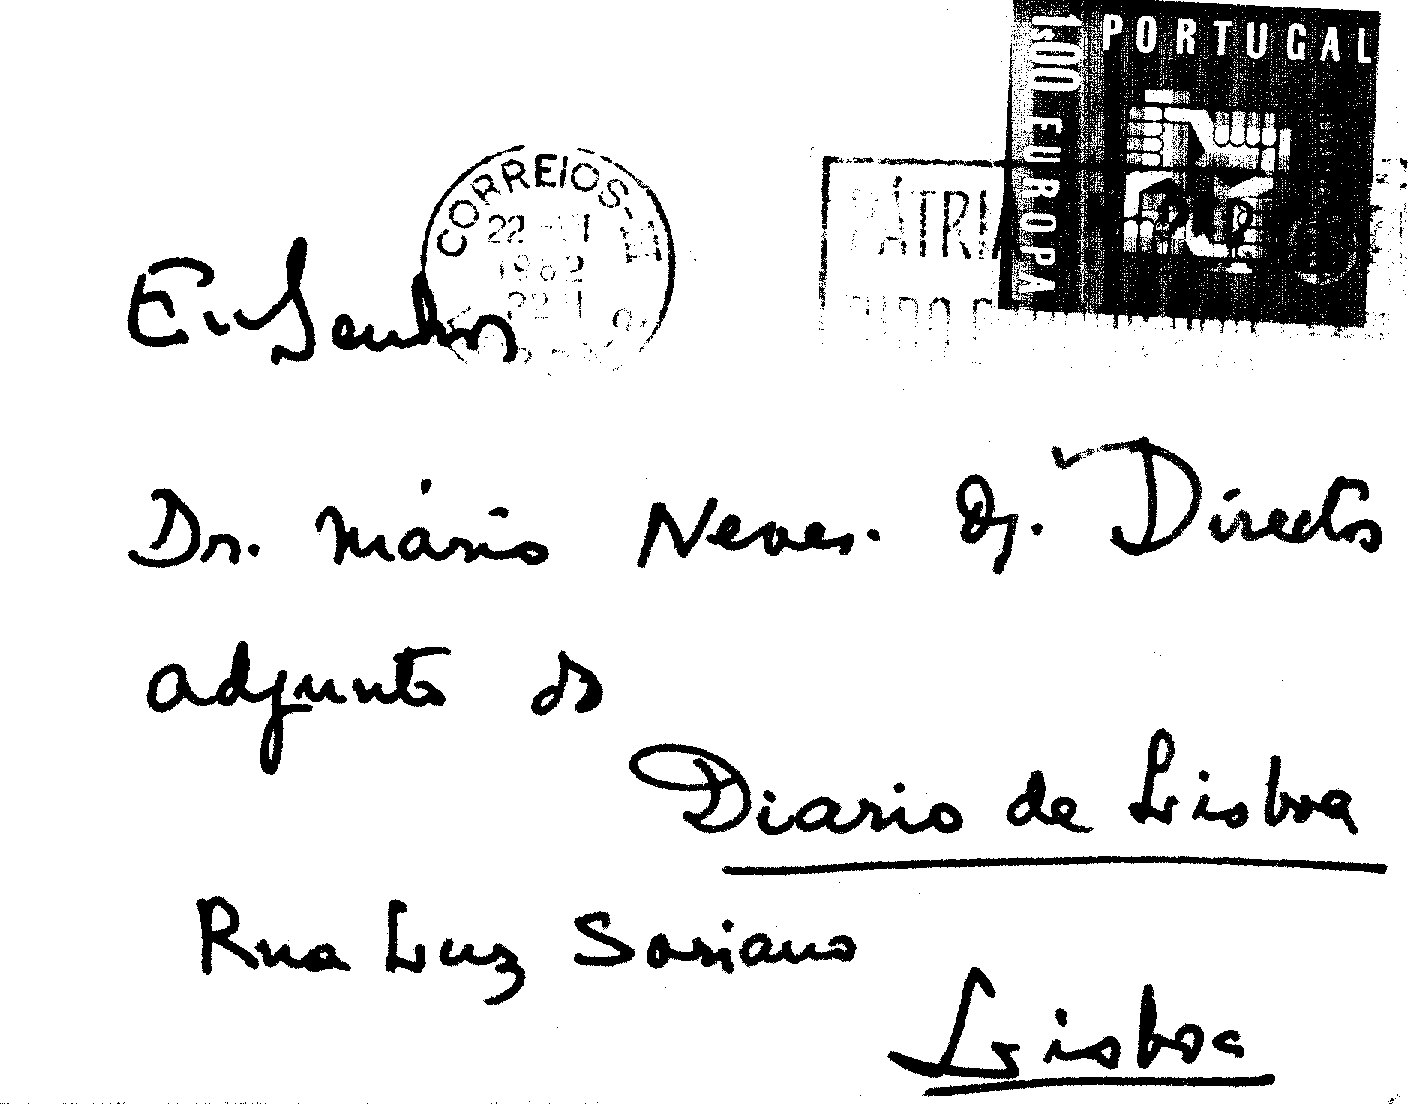 PORTUGAL
1$00 EUROPA
CORREIOS
22
1962
PÁTRIA
Ex Senhor
Dr. Mário Neves. Dg. Director
adjunto do
Diario de Lisboa
Rua Luz Soriano
Lisboa